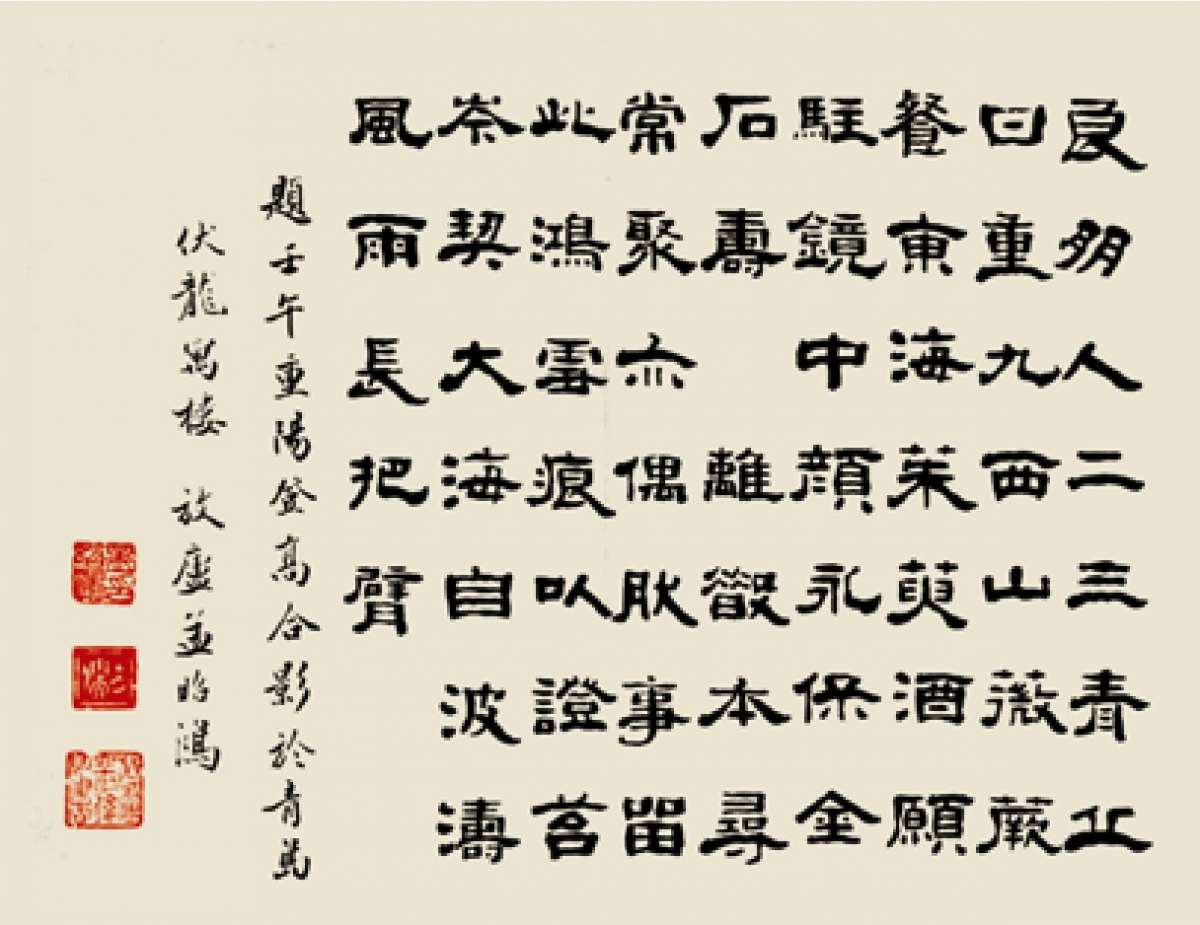 良朋人二三青山
日重九西山薇蕨
餐東海茱萸酒願
駐鏡中顏永保金
石壽 離歡本尋
常聚亦偶耿事留
此鴻雪痕以證苔
岑契大海自波濤
風雨長把臂
題壬午重陽登高合影於青萬
伏龍寫樓 放廬並